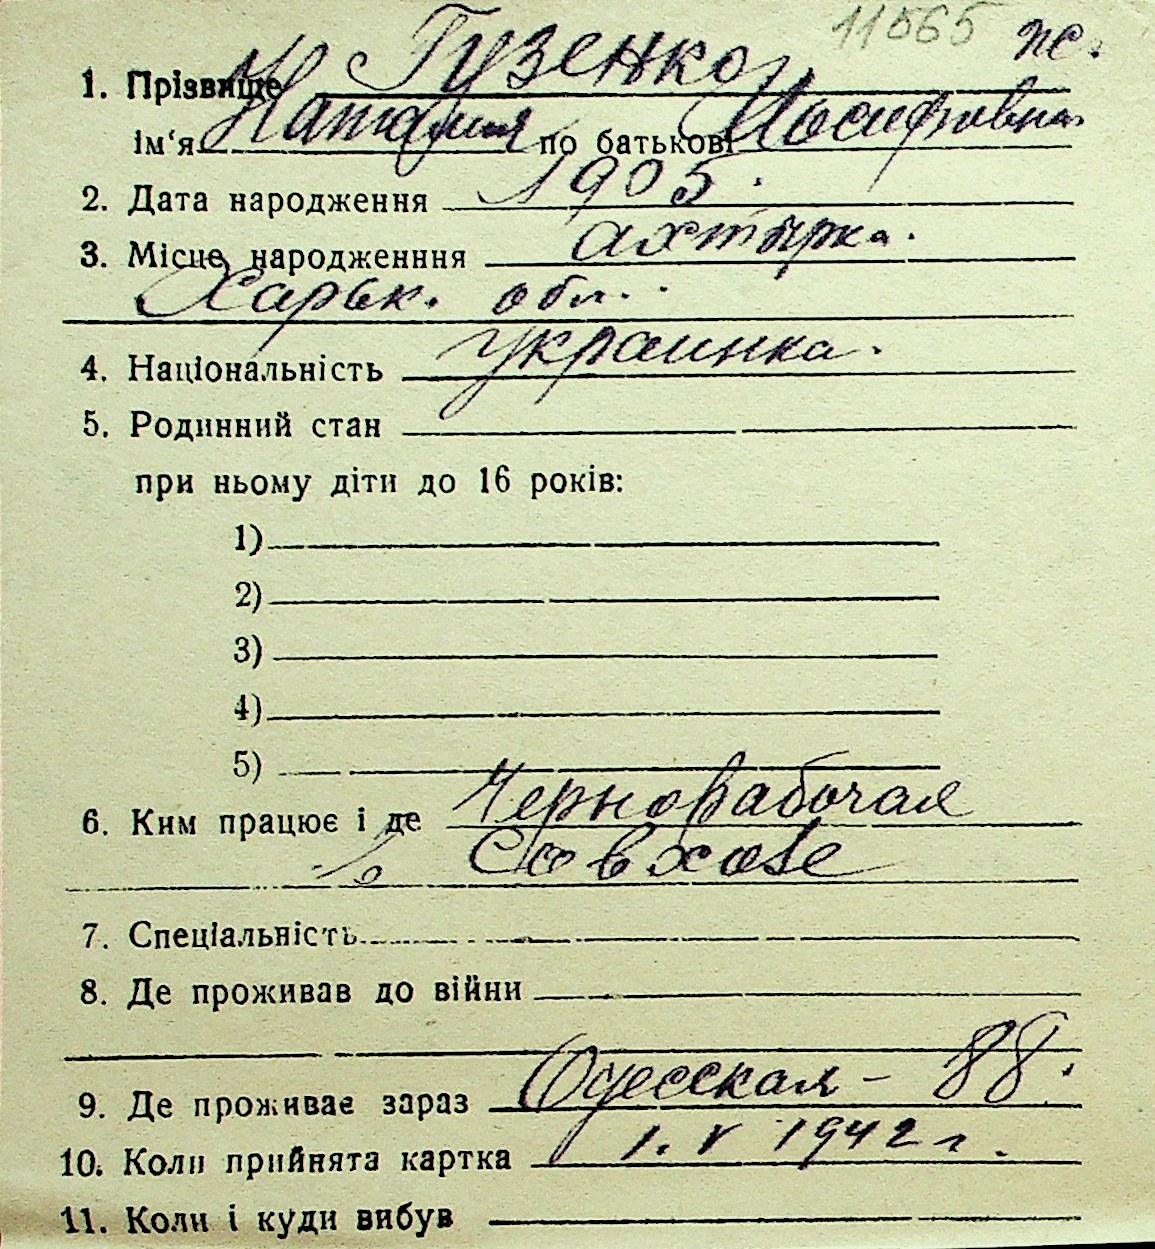 11565 ж.
1. Прізвище Гузенко
ім'я Наталия по батькові Иосифовна
2. Дата народження 1905.
3. Місце народженння ахтырка.
Харьк. обл.
4. Національність украинка.
5. Родинний стан
при ньому діти до 16 років:
1)
2)
3)
4)
5)
6. Ким працює і де Чернорабочая
в Совхозе
7. Спеціальність
8. Де проживав до війни
9. Де проживає зараз Одесская - 88.
10. Коли прийнята картка 1. V 1942 г.
11. Коли і куди вибув